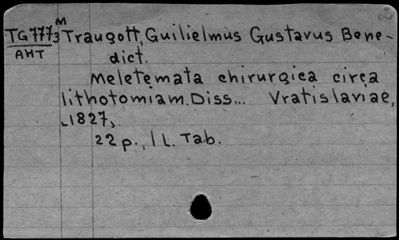 TG7773 M Traugott, Guilielmus Gustavus Bene-
AHT dict.
Meletemata chirurgica circa
lithotomiam. Diss... Vratislaviae,
1827.
22 p., 1 L. Tab.